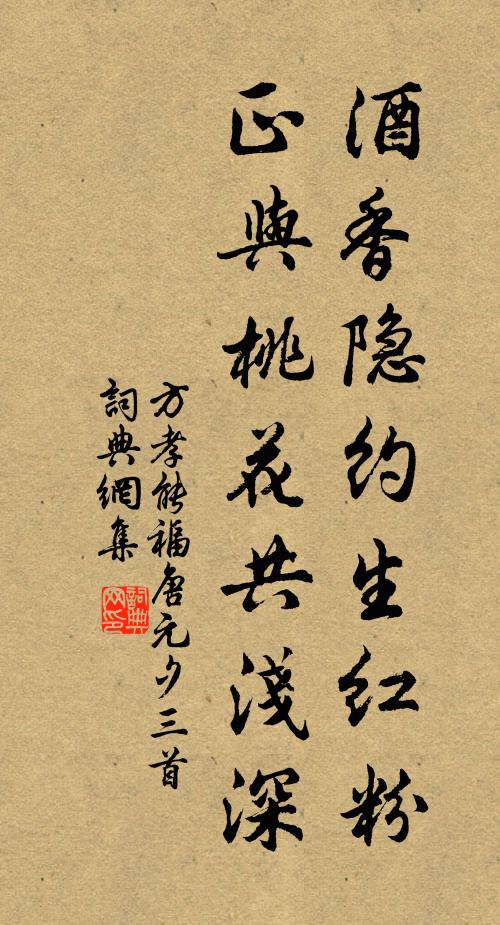 酒香隐约生红粉
正與桃花共淺深
方孝能福唐元夕三首
詞典網集
詞典网印